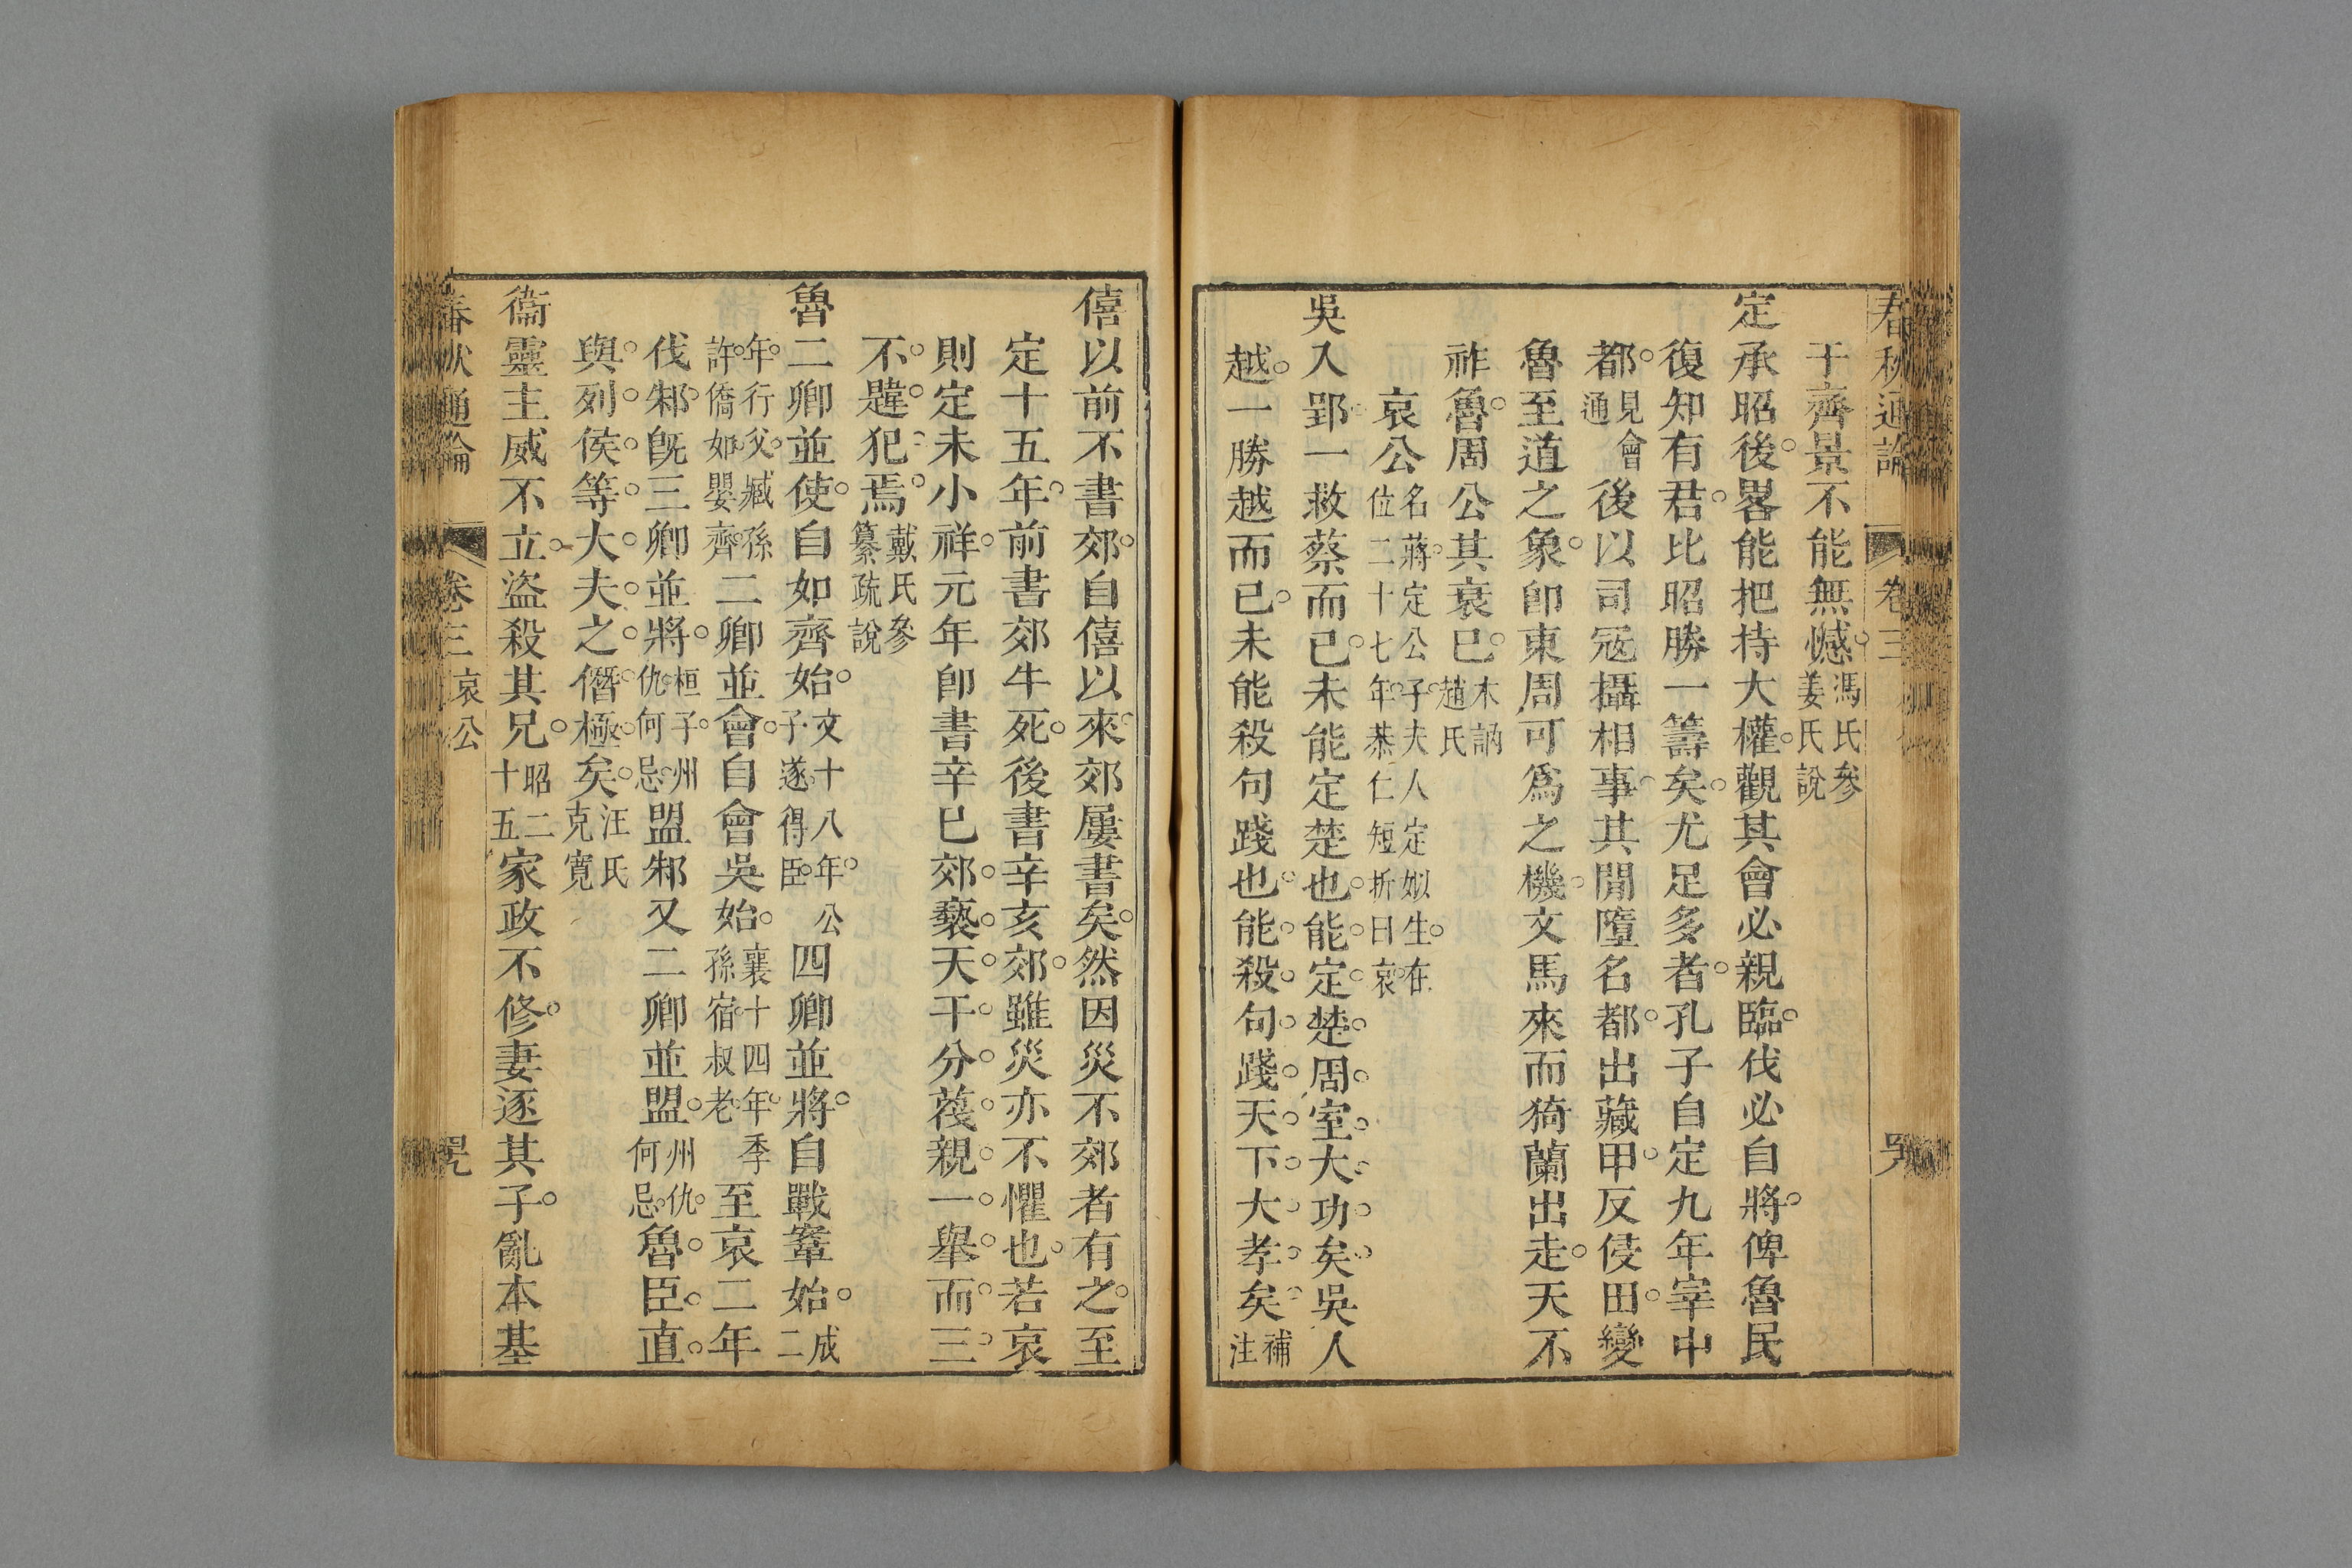 春秋通論 卷三
于齊景不能無憾馮氏參姜氏說
定承昭後畧能把持大權觀其會必親臨伐必自將俾魯民
復知有君比昭勝一籌矣尤足多者孔子自定九年宰中
都見會通後以司寇攝相事其閒墮名都出藏甲反侵田變
魯至道之象卽東周可爲之機文馬來而猗蘭出走天不
祚魯周公其衰已木訥趙氏
哀公名蔣定公子夫人定姒生在位二十七年恭仁短折曰哀
吳入郢一救蔡而已未能定楚也能定楚周室大功矣吳人
越一勝越而已未能殺句踐也能殺句踐天下大孝矣補注
僖以前不書郊自僖以來郊屢書矣然因災不郊者有之至
定十五年前書郊牛死後書辛亥郊雖災亦不懼也若哀
則定未小祥元年卽書辛巳郊褻天干分蔑親一舉而三
不韙犯焉戴氏參纂疏說
魯二卿並使自如齊始文十八年公子遂得臣四卿並將自戰鞌始成二
年行父臧孫許僑如嬰齊二卿並會自會吳始襄十四年季孫宿叔老至哀二年
伐邾旣三卿並將桓子州仇何忌盟邾又二卿並盟州仇何忌魯臣直
與列侯等大夫之僭極矣汪氏克寬
衞靈主威不立盜殺其兄昭二十五家政不修妻逐其子亂本基
春秋通論 卷三 哀公